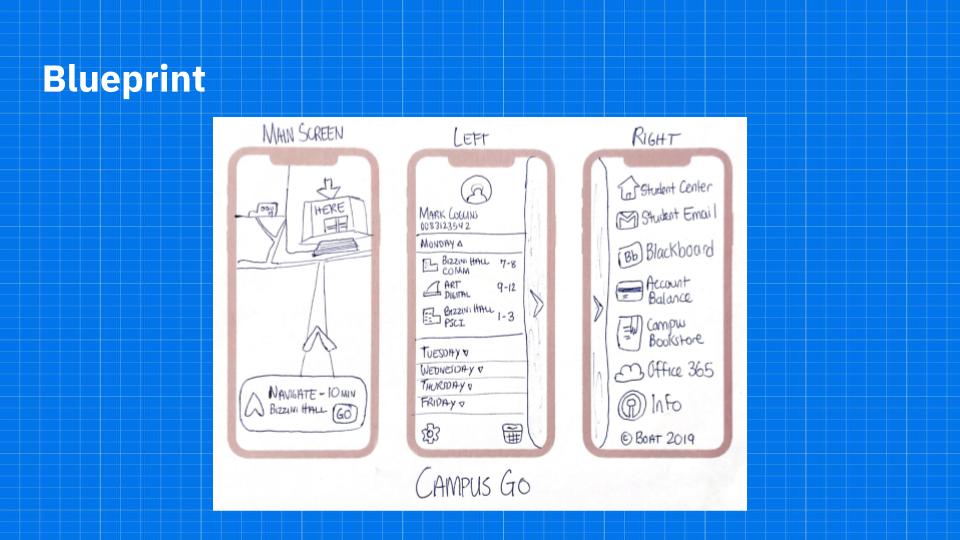 Blueprint
MAIN SCREEN
HERE
NAVIGATE - 10 MIN
BIZZINI HALL GO
LEFT
MARK COLLINS
0083123542
MONDAY
BIZZINI HALL 7-8
COMM
ART 9-12
DIGITAL
BIZZINI HALL 1-3
PSCI
TUESDAY
WEDNESDAY
THURSDAY
FRIDAY
RIGHT
Student Center
Student Email
Bb Blackboard
Account
Balance
Campus
Bookstore
Office 365
Info
© BOAT 2019
CAMPUS GO